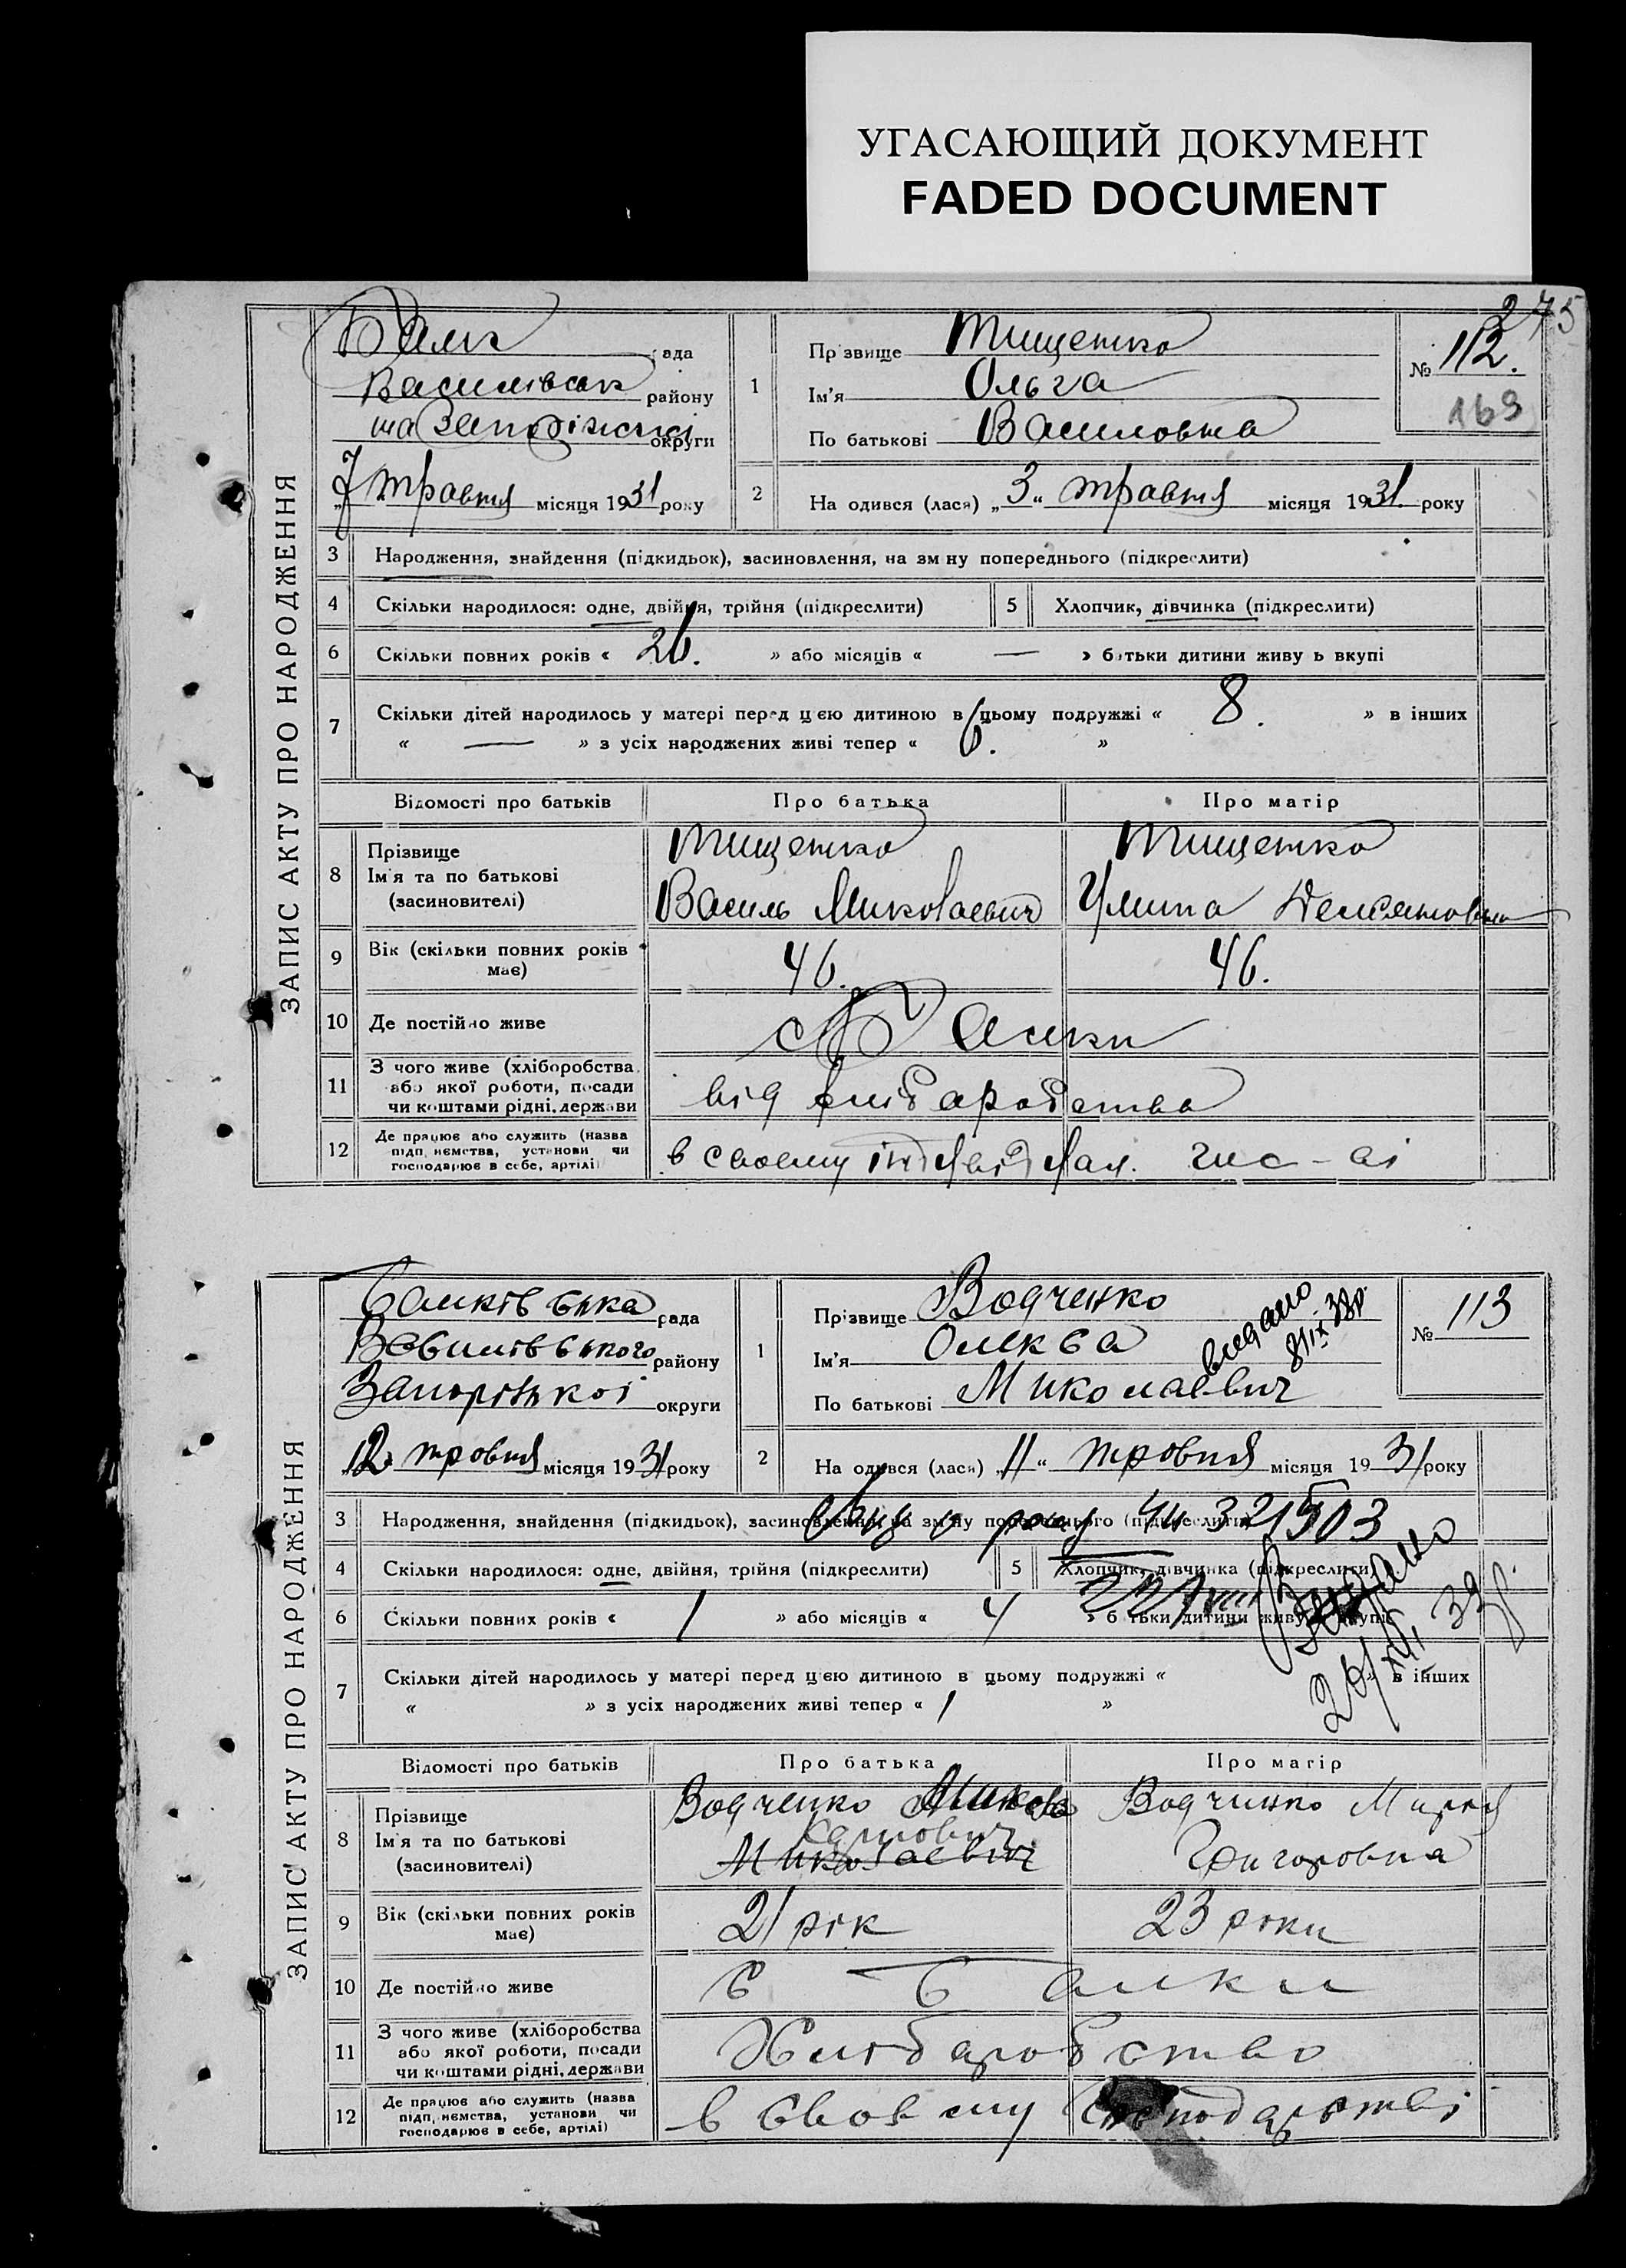 УГАСАЮЩИЙ ДОКУМЕНТ
FADED DOCUMENT
275
ЗАПИС АКТУ ПРО НАРОДЖЕННЯ
Балк рада
Василівськ району
та Запоріжської округи
7 травня місяця 1931 року
1 Прізвище Тищенко
Ім'я Ольга
По батькові Василовна
№ 112.
169
2 На одився (лася) „3" травня місяця 1931 року
3 Народження, знайдення (підкидьок), засиновлення, на зм ну попереднього (підкреслити)
4 Скільки народилося: одне, двійня, трійня (підкреслити) 5 Хлопчик, дівчинка (підкреслити)
6 Скільки повних років « 26. » або місяців « — » батьки дитини живу ь вкупі
7 Скільки дітей народилось у матері перед цією дитиною в цьому подружжі « 8. » в інших
« — » з усіх народжених живі тепер « 6. »
Відомості про батьків Про батька Про матір
8 Прізвище Ім'я та по батькові (засиновителі)
Тищенко Тищенко
Василь Миколаевич Улита Демяновна
9 Вік (скільки повних років має) 46. 46.
10 Де постійно живе с Балки
11 З чого живе (хліборобства або якої роботи, посади чи коштами рідні, держави від хлібаробства
12 Де працює або служить (назва підп иємства, установи чи господарює в себе, артілі) в своему індивідуал. гос-ві
ЗАПИС АКТУ ПРО НАРОДЖЕННЯ
Балківська рада
Василівського району
Запорізької округи
12 травня місяця 1931 року
1 Прізвище Водченко
Ім'я Олекса
По батькові Миколаевич
видано
№ 113
2 На одився (лася) „11" травня місяця 1931 року
3 Народження, знайдення (підкидьок), засиновлення, на зм ну попереднього (підкреслити)
321503
4 Скільки народилося: одне, двійня, трійня (підкреслити) 5 Хлопчик, дівчинка (підкреслити)
6 Скільки повних років « 1 » або місяців « 4 » б тьки дитини живу вкупі
Видано
7 Скільки дітей народилось у матері перед цією дитиною в цьому подружжі « » в інших
« » з усіх народжених живі тепер « 1 »
Відомості про батьків Про батька Про матір
8 Прізвище Ім'я та по батькові (засиновителі)
Водченко Микола Водченко Мария
Миколаевич Григоровна
9 Вік (скільки повних років має) 21 рік 23 роки
10 Де постійно живе с Балки
11 З чого живе (хліборобства або якої роботи, посади чи коштами рідні, держави Хлібаробство
12 Де працює або служить (назва підп иємства, установи чи господарює в себе, артілі) в своему господарстві